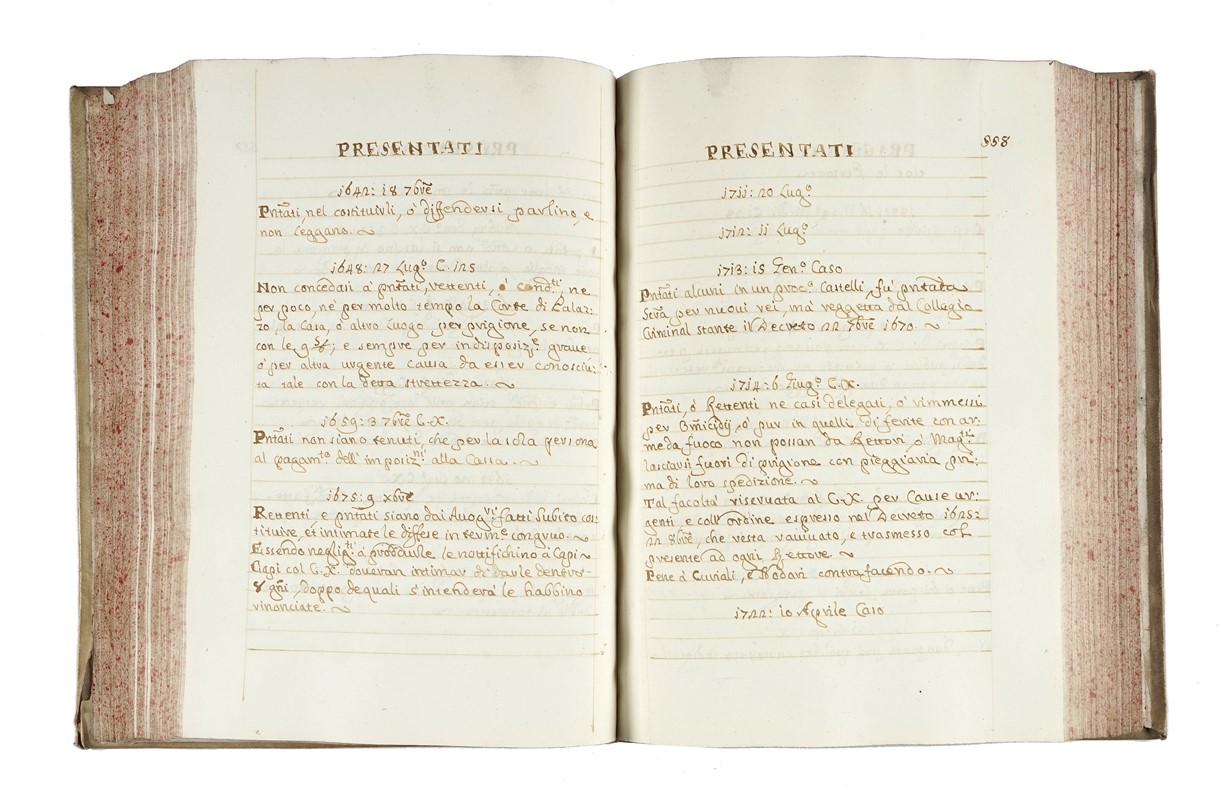 PRESENTATI
1642: 18 7bre
Pntati, nel costituirli, ò diffendersi parlino, e
non leggano.
1648: 27 Lugo C. 125
Non concedasi à pntati, rettenti, ò condti, ne
per poco, nè per molto tempo la Corte di Palaz:
zo, la Casa, ò altro luogo per prigione, se non
con le 5/6; e sempre per indisposize graue
ò per altra urgente causa da esser conosciu:
ta tale con la detta strettezza.
1659: 3 7bre C.X.
Pntati non siano tenuti, che per la sola persona
al pagamto dell' imposizni alla Cassa.
1675: 9 xbre
Rettenti, e pntati siano dai Auogri fatti subito cos:
tituire, et intimate le diffese in termine congruo.
Essendo negligti à produrle le nottifichino à Capi
Capi col C.X. doueran intimar di darle dentro
8 gni, doppo de quali s'intenderà le habbino
rinonciate.
PRESENTATI 558
1711: 20 Lugo
1712: 11 Lugo
1713: 15 Geno Caso
Pntati alcuni in un proco Castelli, fù pntata
Scra per nuoui rei, mà reggetta dal Collegio
Criminal stante il Decreto 22 7bre 1670.
1714: 6 Giugo C.X.
Pntati, ò Rettenti ne casi delegati, ò rimmessi
per Omicidij, ò pur in quelli di ferite con ar:
me da fuoco non possan da Rettori, ò Magti
lasciarsi fuori di prigione con pieggiaria pri:
ma di loro spedizione.
Tal facoltà riseruata al C.X. per Cause ur:
genti, e coll' ordine espresso nel Decreto 1625:
22 8bre, che resta rauiuato, e trasmesso col
presente ad ogni Rettore.
Pene à Curiali, e Nodari contrafacendo.
1722: 10 Aprile Caso